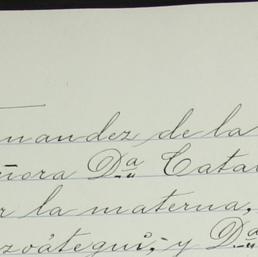 nandez de la
ñora Dª Cata
r la materna,
zoátegui; y Dª